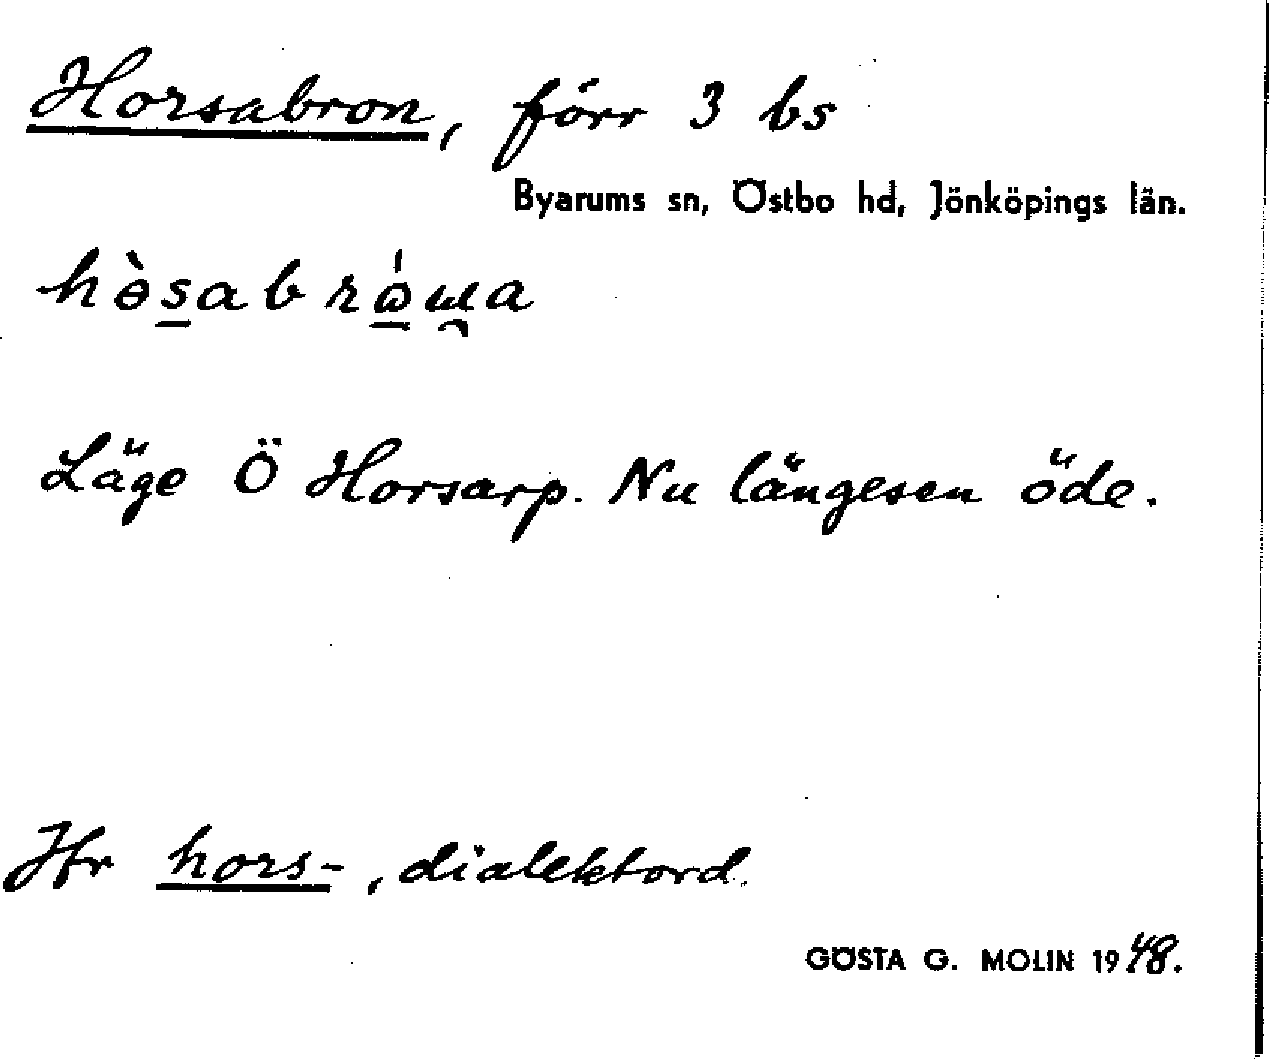 Horsabron, förr 3 bs
Byarums sn, Östbo hd, Jönköpings län.
Läge Ö Horsarp. Nu längesen öde.
Jfr hors-, dialektord.
GÖSTA G. MOLIN 1948.